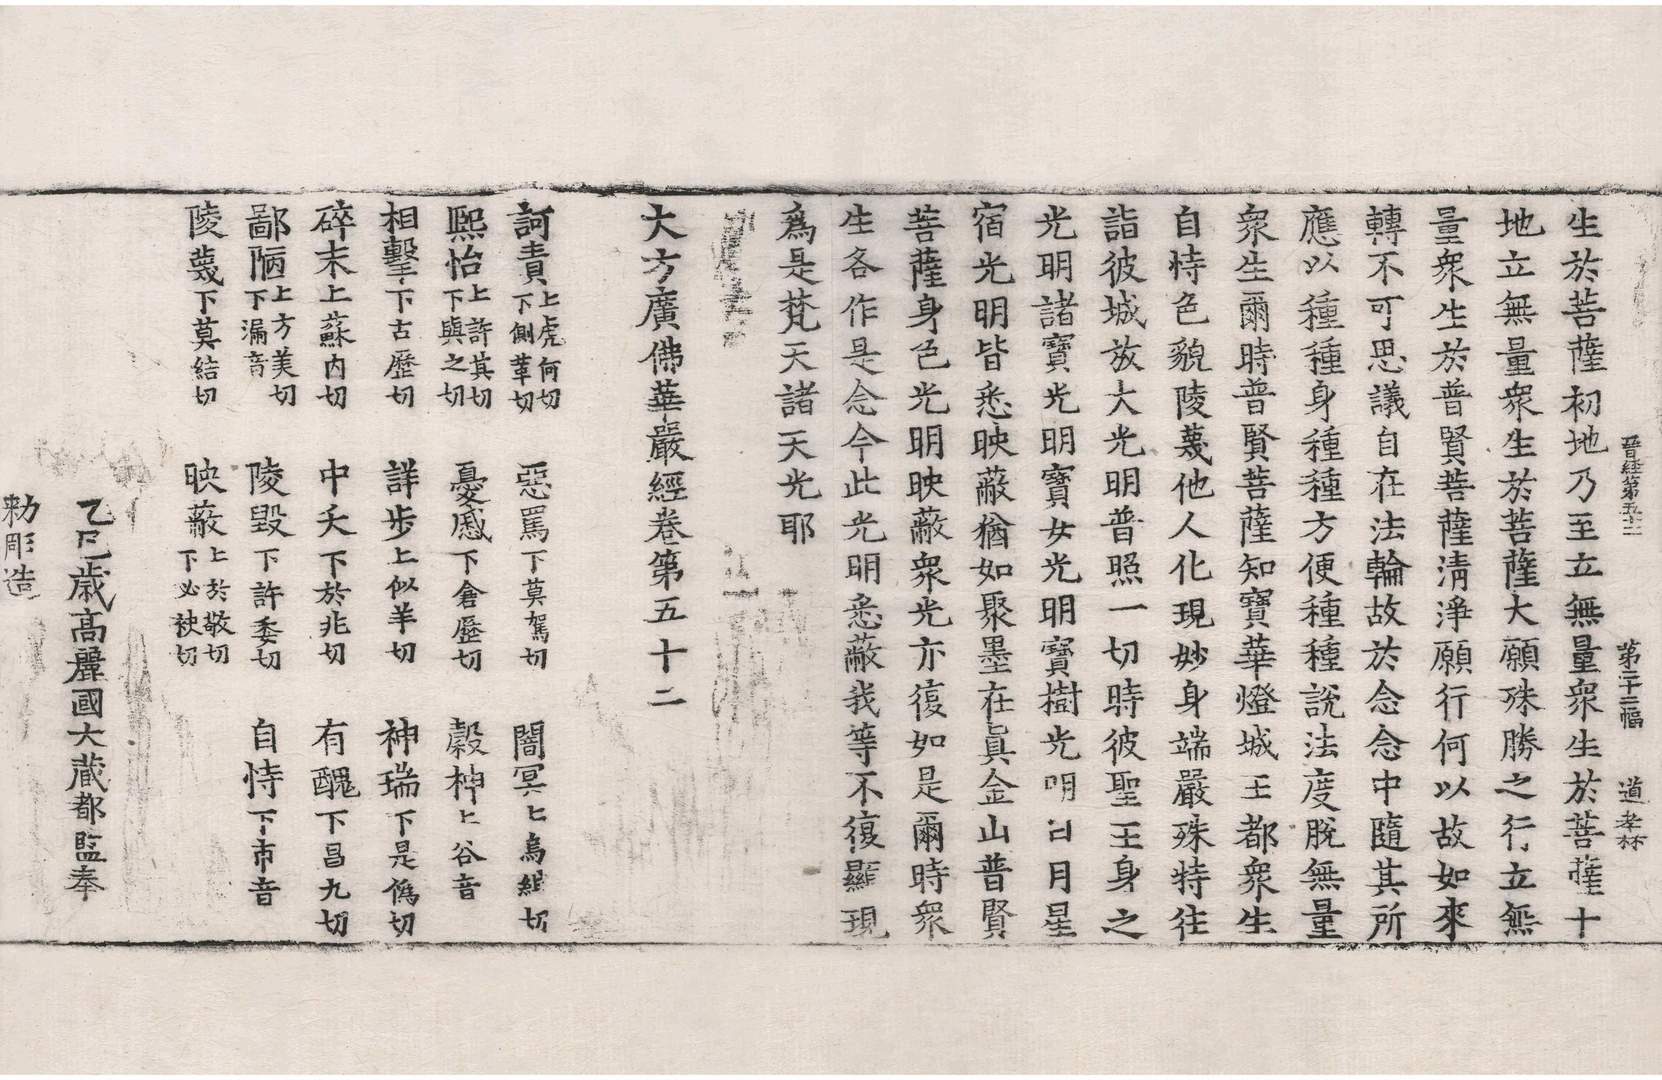 晉經第五十二　第二十三幅　道　孝林
生於菩薩初地乃至立無量眾生於菩薩十
地立無量眾生於菩薩大願殊勝之行立無
量眾生於普賢菩薩清淨願行何以故如來
轉不可思議自在法輪故於念念中隨其所
應以種種身種種方便種種說法度脫無量
眾生爾時普賢菩薩知寶華燈城王都眾生
自恃色貌陵蔑他人化現妙身端嚴殊特往
詣彼城放大光明普照一切時彼聖王身之
光明諸寶光明寶女光明寶樹光明日月星
宿光明皆悉映蔽猶如聚墨在真金山普賢
菩薩身色光明映蔽眾光亦復如是爾時眾
生各作是念今此光明悉蔽我等不復顯現
為是梵天諸天光耶
大方廣佛華嚴經卷第五十二
訶責上虎何切下側革切　惡罵下莫駕切　闇冥上烏紺切
熙怡上許其切下與之切　憂慼下倉歷切　穀神上谷音
相擊下古歷切　詳步上似羊切　神瑞下是偽切
碎末上蘇內切　中夭下於兆切　有醜下昌九切
鄙陋上方美切下漏音　陵毀下許委切　自恃下市音
陵蔑下莫結切　映蔽上於敬切下必袂切
乙巳歲高麗國大藏都監奉
勑彫造